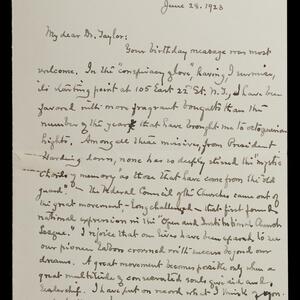 June 28, 1923
My dear Dr. Taylor:
Your birthday message was most
welcome. In the "conspiracy of love", having, I surmise,
its starting point at 105 East 22d St. N.Y., I have been
favored with more fragrant bouquets than the
number of the years that have brought me to octogenarian
hights. Among all these missives, from President
Harding down, none has so deeply stirred the "mystic
chords of memory" as those that have come from the "old
guard". The Federal Council of the Churches came out of
the great movement - long challenged - that first found
national expression in the "Open and Institutional Church
League". I rejoice that our lives have been spared to see
our pioneer labors crowned with success beyond our
dreams. A great movement becomes possible only when a
great multitude of consecrated souls give aid and
leadership. I have put on record what I think of your